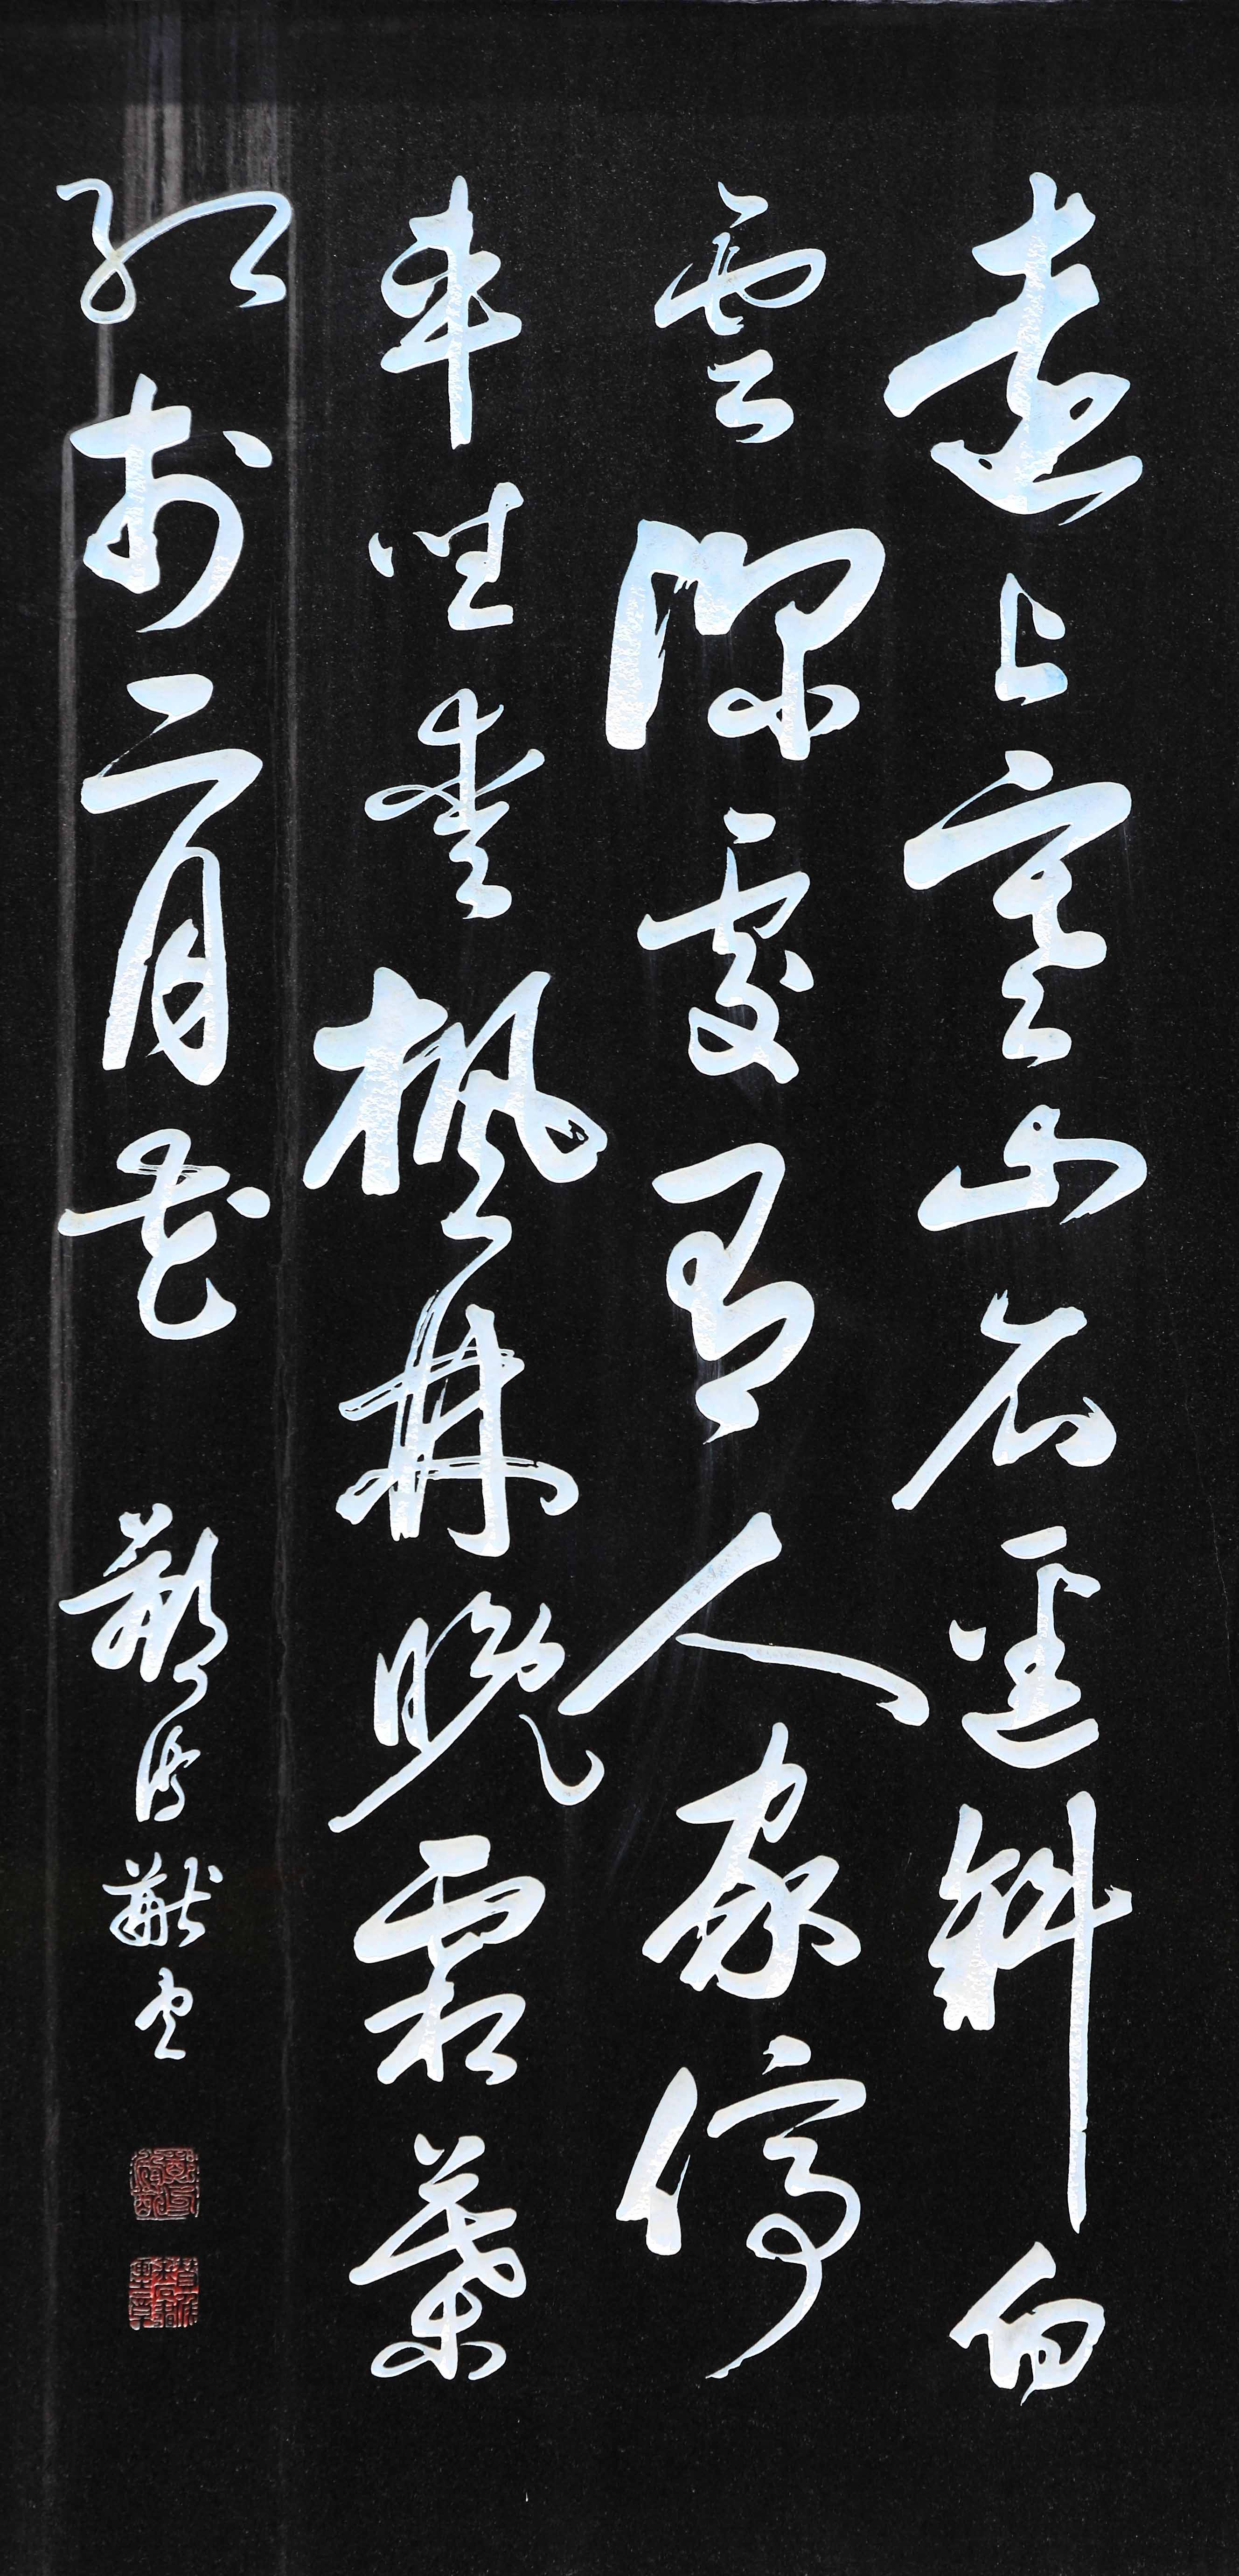 遠上寒山石逕斜白
雲深處有人家停
車坐愛楓林晚霜葉
紅於二月花